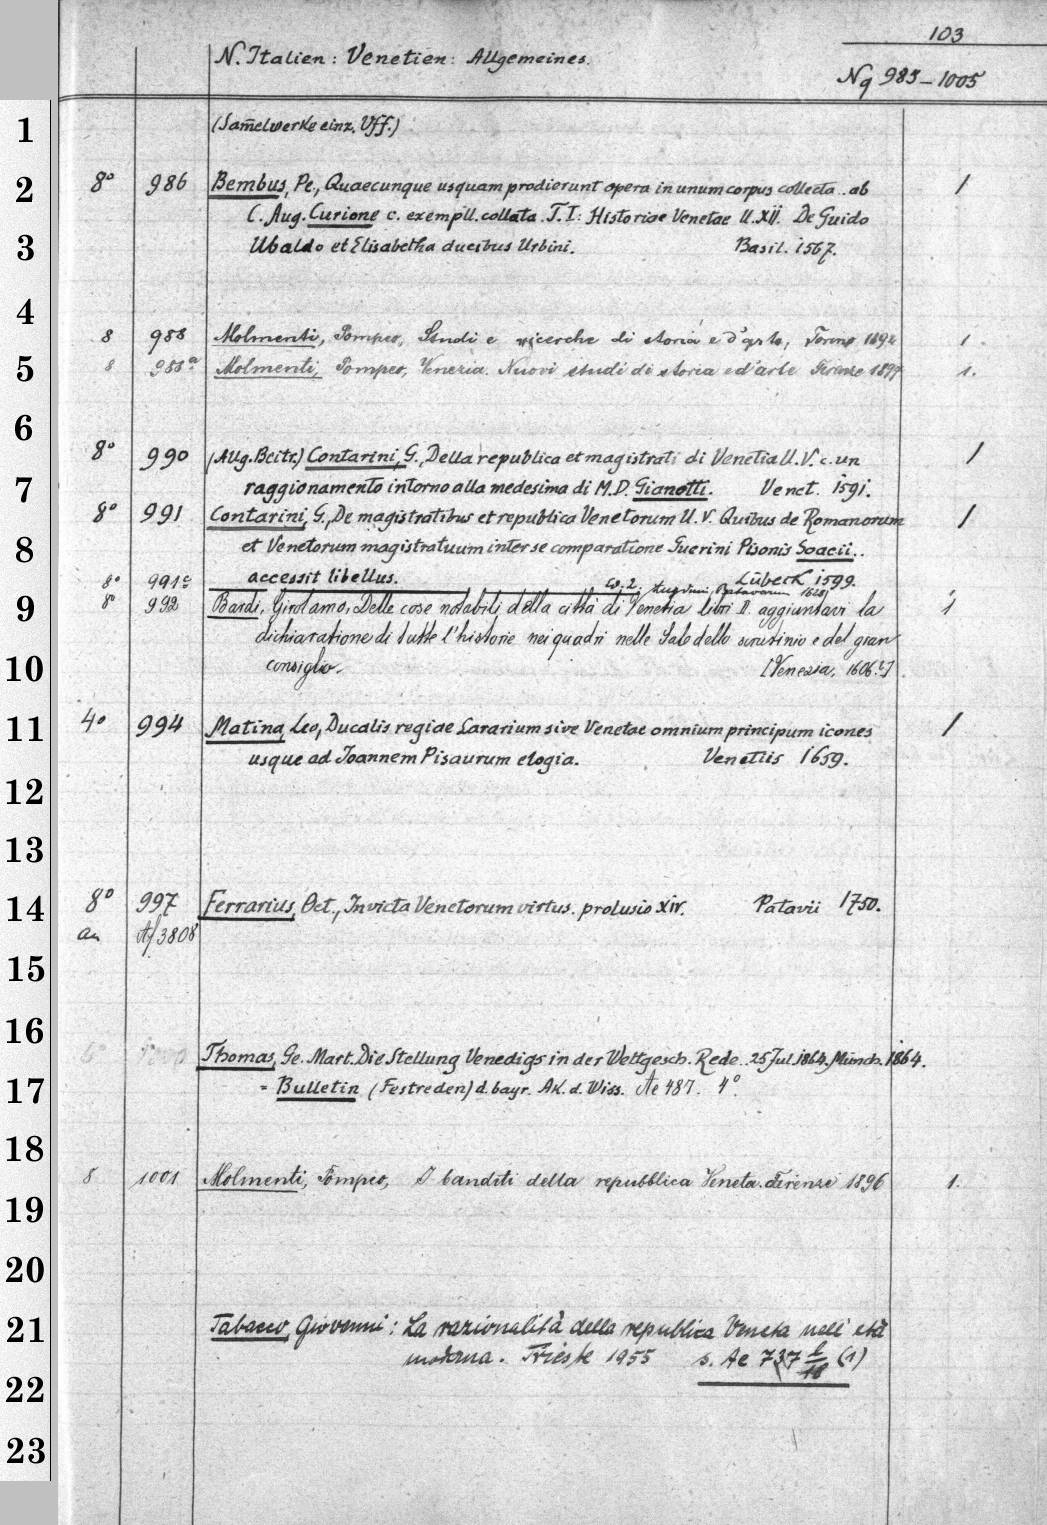 103
N. Italien: Venetien: Allgemeines.
Nq 985–1005
1
(Sam̄elwerke einz. Vff.)
2 8° 986 Bembus, Pe., Quaecunque usquam prodierunt opera in unum corpus collecta.. ab 1
C. Aug. Curione c. exempll. collata. T. I: Historiae Venetae ll. XII. De Guido
3 Ubaldo et Elisabetha ducibus Urbini. Basil. 1567.
4
8 988 Molmenti, Pompeo, Studi e ricerche di storia e d'arte, Torino 1892 1.
5 8 988a Molmenti, Pompeo, Venezia. Nuovi studi di storia e d'arte Firenze 1897 1.
6
8° 990 (Aug. Beitr.) Contarini, G., Della republica et magistrati di Venetia ll. V. c. un 1
7 raggionamento intorno alla medesima di M. D. Gianotti. Venet. 1591.
8° 991 Contarini, G., De magistratibus et republica Venetorum ll. V. Quibus de Romanorum 1
8 et Venetorum magistratuum inter se comparatione Guerini Pisonis Soacii..
8° 991c accessit libellus. Lübeck 1599.
9 8° 992 Bardi, Girolamo, Delle cose notabili della città di Venetia libri II. aggiuntavi la 1
dichiaratione di tutte l'historie nei quadri nelle Sale dello scrutinio e del gran
10 consiglio. [Venezia, 1606.]
11 4° 994 Matina, Leo, Ducalis regiae Lararium sive Venetae omnium principum icones 1
usque ad Joannem Pisaurum elogia. Venetiis 1659.
12
13
14 8° 997 Ferrarius, Oct., Invicta Venetorum virtus. prolusio XIV. Patavii 1750.
an Af 3808
15
16
Thomas, Ge. Mart. Die Stellung Venedigs in der Weltgesch. Rede.. 25 Jul. 1864. Münch. 1864.
17 = Bulletin (Festreden) d. bayr. Ak. d. Wiss. Ae 487. 4°.
18
8 1001 Molmenti, Pompeo, I banditi della repubblica Veneta. Firenze 1896 1.
19
20
21 Tabacco, Giovanni: La razionalità della republica Veneta nell' età
moderna. Trieste 1955 s. Ae 737 (1)
22
23